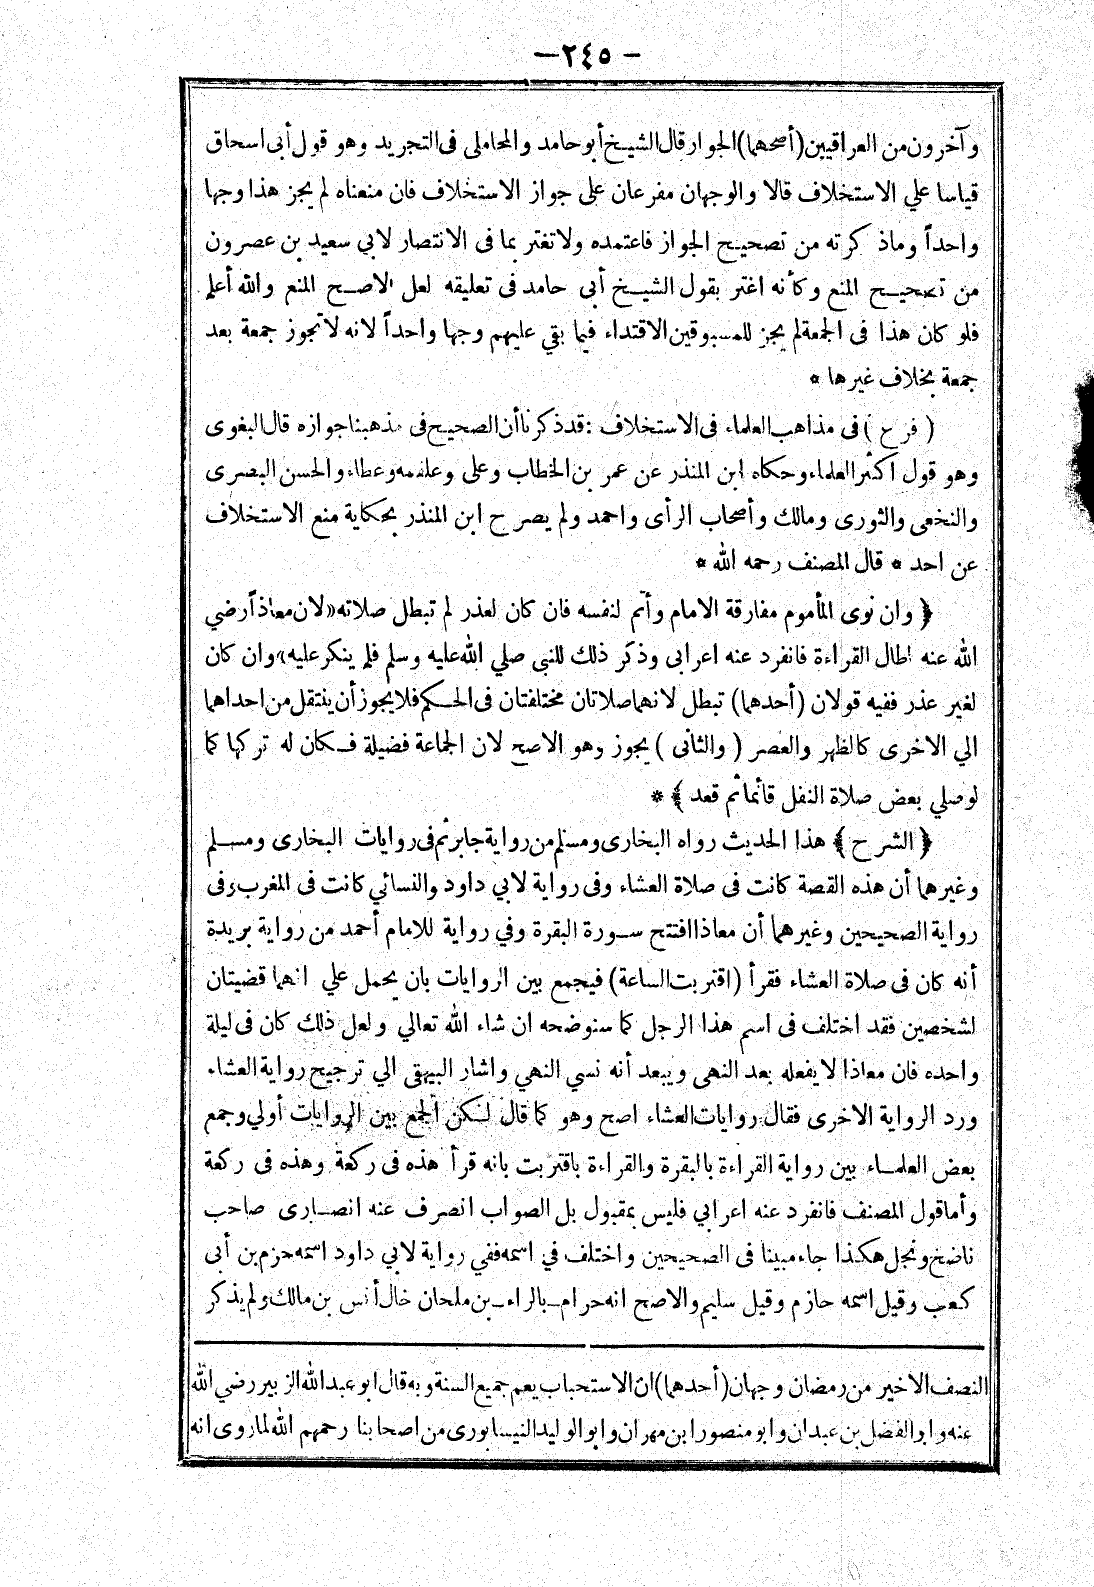 — ٢٤٥ —
وآخرون من العراقيين (أصحهما) الجواز قال الشيخ أبو حامد والمحاملى فى التجريد وهو قول أبى اسحاق
قياسا علي الاستخلاف قالا والوجهان مفرعان على جواز الاستخلاف فان منعناه لم يجز هذا وجها
واحداً وماذ كرته من تصحيح الجواز فاعتمده ولا تغتر بما فى الانتصار لابي سعيد بن عصرون
من تصحيح المنع وكأنه اغتر بقول الشيخ أبى حامد فى تعليقه لعل الاصح المنع والله أعلم
فلو كان هذا فى الجمعة لم يجز للمسبوقين الاقتداء فيما بقي عليهم وجها واحداً لانه لا تجوز جمعة بعد
جمعة بخلاف غيرها *
( فرع ) فى مذاهب العلماء فى الاستخلاف : قد ذكرنا أن الصحيح فى مذهبنا جوازه قال البغوى
وهو قول اكثر العلماء وحكاه ابن المنذر عن عمر بن الخطاب وعلى وعلقمه وعطاء والحسن البصرى
والنخعى والثورى ومالك وأصحاب الرأى واحمد ولم يصرح ابن المنذر بحكاية منع الاستخلاف
عن احد * قال المصنف رحمه الله *
﴿ وان نوى المأموم مفارقة الامام وأتم لنفسه فان كان لعذر لم تبطل صلاته «لان معاذاً رضي
الله عنه اطال القراءة فانفرد عنه اعرابى وذكر ذلك للنبى صلي الله عليه وسلم فلم ينكر عليه» وان كان
لغير عذر ففيه قولان (أحدهما) تبطل لانهما صلاتان مختلفتان فى الحكم فلا يجوز أن ينتقل من احداهما
الي الاخرى كالظهر والعصر ( والثانى ) يجوز وهو الاصح لان الجماعة فضيلة فكان له تركها كما
لوصلي بعض صلاة النفل قائما ثم قعد ﴾ *
﴿ الشرح ﴾ هذا الحديث رواه البخارى ومسلم من رواية جابر ثم فى روايات البخارى ومسلم
وغيرهما أن هذه القصة كانت فى صلاة العشاء وفى رواية لابي داود والنسائي كانت فى المغرب وفى
رواية الصحيحين وغيرهما أن معاذا افتتح سورة البقرة وفي رواية للامام أحمد من رواية بريدة
أنه كان فى صلاة العشاء فقرأ (اقتربت الساعة) فيجمع بين الروايات بان يحمل علي انهما قضيتان
لشخصين فقد اختلف فى اسم هذا الرجل كما سنوضحه ان شاء الله تعالي ولعل ذلك كان فى ليلة
واحده فان معاذا لا يفعله بعد النهى ويبعد أنه نسي النهي واشار البيهقى الي ترجيح رواية العشاء
ورد الرواية الاخرى فقال روايات العشاء اصح وهو كما قال لكن الجمع بين الروايات أولي وجمع
بعض العلماء بين رواية القراءة بالبقرة والقراءة باقتربت بانه قرأ هذه فى ركعة وهذه فى ركعة
وأما قول المصنف فانفرد عنه اعرابي فليس بمقبول بل الصواب انصرف عنه انصارى صاحب
ناضح ونخل هكذا جاء مبينا فى الصحيحين واختلف في اسمه ففي رواية لابي داود اسمه حزم بن أبى
كعب وقيل اسمه حازم وقيل سليم والاصح انه حرام ـ بالراء ـ بن ملحان خال أنس بن مالك ولم يذكر
النصف الاخير من رمضان وجهان (أحدهما) ان الاستحباب يعم جميع السنة وبه قال ابو عبد الله الزبير رضي الله
عنه وابو الفضل بن عبدان وابو منصور ابن مهران وابو الوليد النيسابورى من اصحابنا رحمهم الله لما روى انه